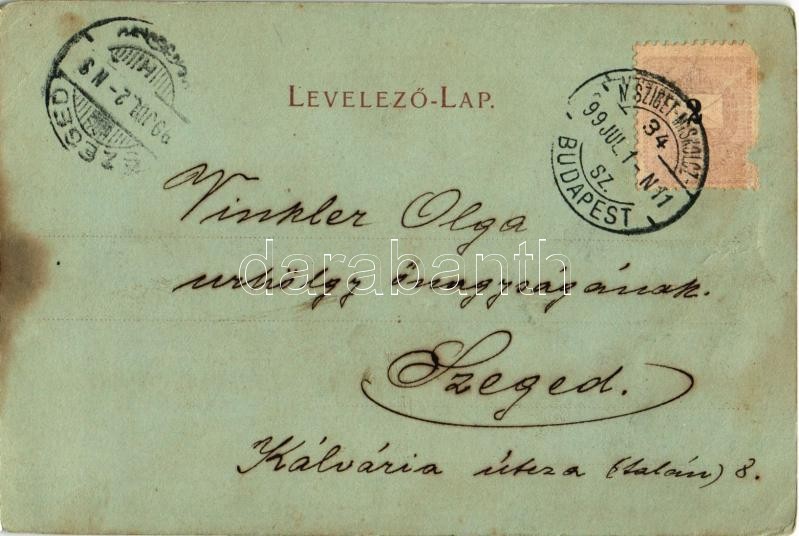 SZEGED
99 JUL. 2- N 9
LEVELEZŐ-LAP.
2
N.SZIGET-MISKOLCZ.
34
99 JUL. 1-N11
SZ.
BUDAPEST
Vinkler Olga
urhölgy őnagyságának.
darabanth
Szeged.
Kálvária útcza (talán) 8.